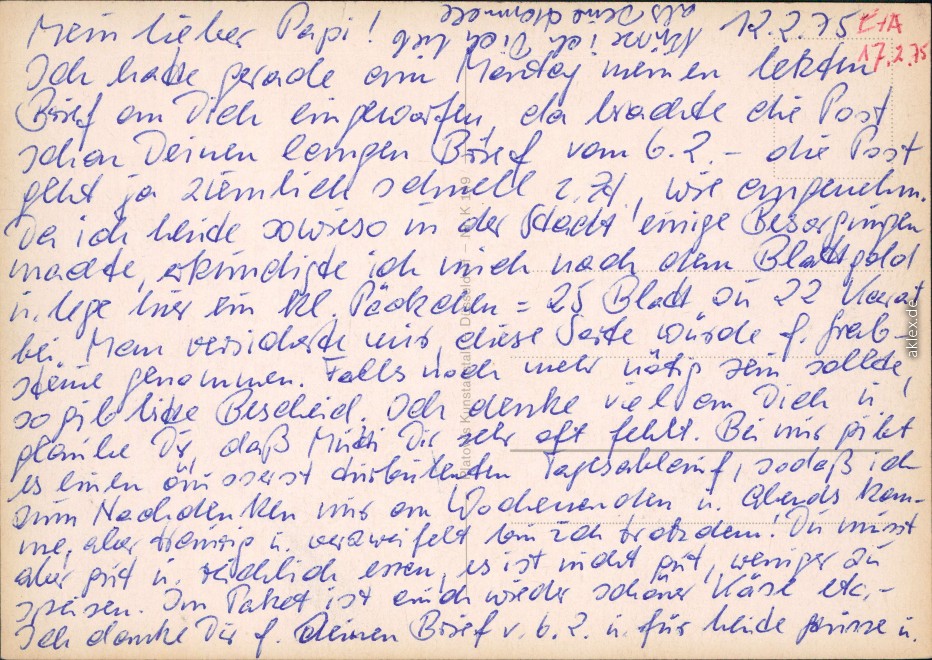 Mein lieber Papi! 12.2.75
E+A
17.2.75
Ich hatte gerade am Montag meinen letzten
Brief an Dich eingeworfen, da brachte die Post
schon Deinen langen Brief vom 6.2. - die Post
geht ja ziemlich schnell z.Zt., wie angenehm.
Da ich heute sowieso in der Stadt einige Besorgungen
machte, erkundigte ich mich nach dem Blattgold
u. lege hier ein kl. Päckchen = 25 Blatt zu 22 Karat
bei. Man versicherte mir, diese Sorte würde f. Grab-
steine genommen. Falls noch mehr nötig sein sollte,
so gib bitte Bescheid. Ich denke viel an Dich u.
glaube Dir, daß Mutti Dir sehr oft fehlt. Bei mir gibt
es einen äusserst turbulenten Tagesablauf, sodaß ich
zum Nachdenken nur an Wochenenden u. abends kom-
me, aber traurig u. verzweifelt bin ich trotzdem! Du musst
aber gut u. reichlich essen, es ist nicht gut, weniger zu
speisen. Im Paket ist auch wieder schöner Käse etc. -
Ich danke Dir f. Deinen Brief v. 6.2. u. für heute grüsse u.
küsse ich Dich lieb
als Deine
aklex.de